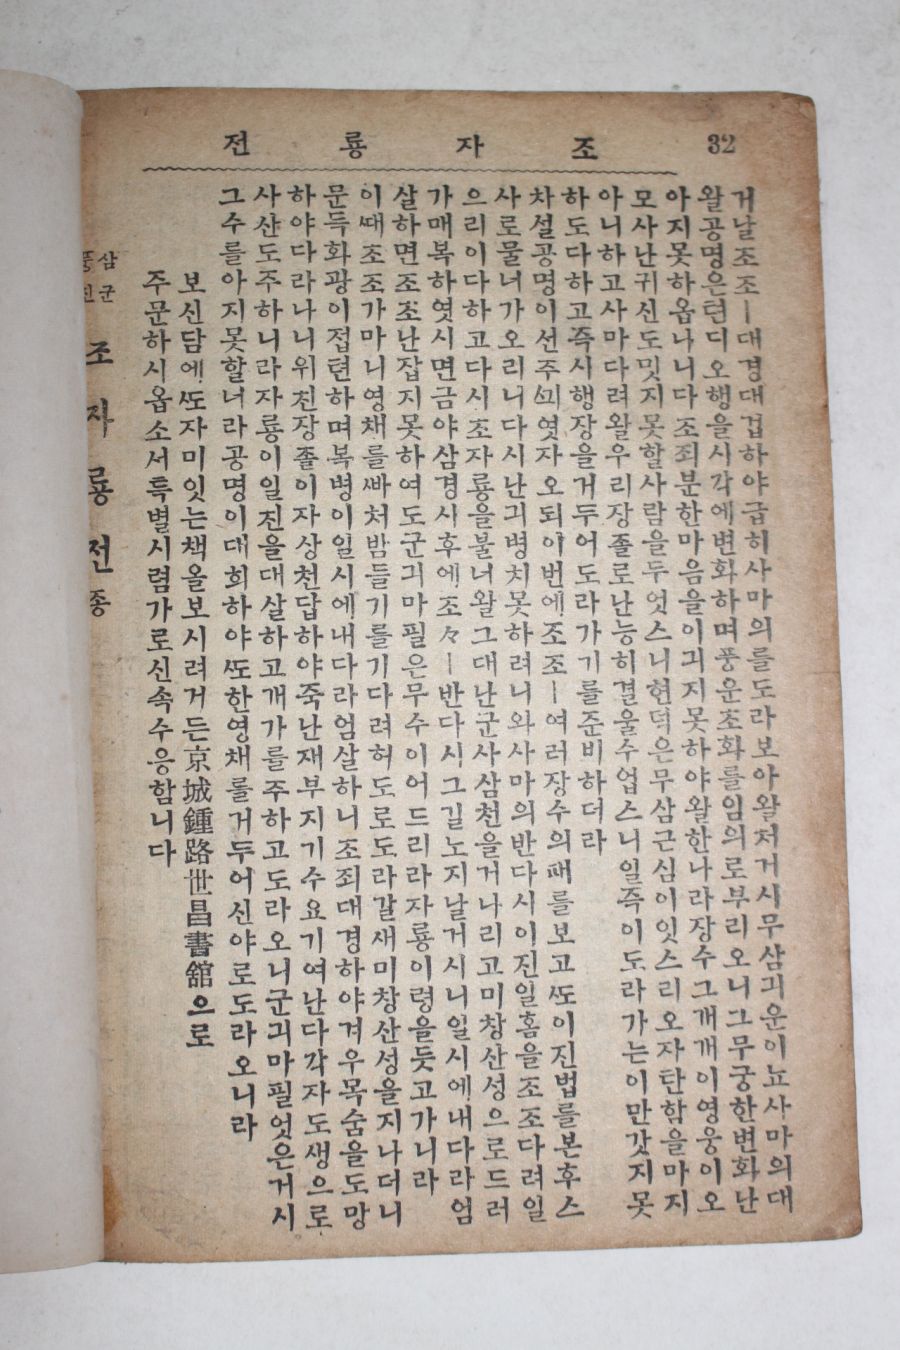 32 조자룡전
거날조조ㅣ대경대겁하야급히사마의를도라보아왈처거시무삼긔운이뇨사마의대
왈공명은련디오행을시각에변화하며풍운조화를임의로부리오니그무궁한변화난
아지못하옵나니다조죄분한마음을이긔지못하야왈한나라장수그개개이영웅이오
모사난귀신도밋지못할사람을두엇스니현덕은무삼근심이잇스리오자탄함을마지
아니하고사마다려왈우리장졸로난능히결울수업스니일즉이도라가는이만갓지못
하도다하고즉시행장을거두어도라가기를준비하더라
차설공명이선주ᄭᅴ엿자오되이번에조조ㅣ여러장수의패를보고ᄯᅩ이진법를본후스
사로물너가오리니다시난긔병치못하려니와사마의반다시이진일홈을조조다려일
으리이다하고다시조자룡을불너왈그대난군사삼천을거나리고미창산성으로드러
가매복하엿시면금야삼경시후에조々ㅣ반다시그길노지날거시니일시에내다라엄
살하면조조난잡지못하여도군긔마필은무수이어드리라자룡이령을듯고가니라
이ᄯᅢ조조가마니영채를ᄲᅡ처밤들기를기다려허도로도라갈새미창산성을지나더니
문득화광이접련하며복병이일시에내다라엄살하니조죄대경하야겨우목숨을도망
하야다라나니위진장졸이자상천답하야죽난재부지기수요기여난다각자도생으로
사산도주하니라자룡이일진을대살하고개가를주하고도라오니군긔마필엇은거시
그수를아지못할너라공명이대희하야ᄯᅩ한영채를거두어신야로도라오니라
보신담에ᄯᅩ자미잇는책을보시려거든京城鍾路世昌書舘으로
주문하시옵소서특별시렴가로신속수응함니다
삼군
조자룡전 종